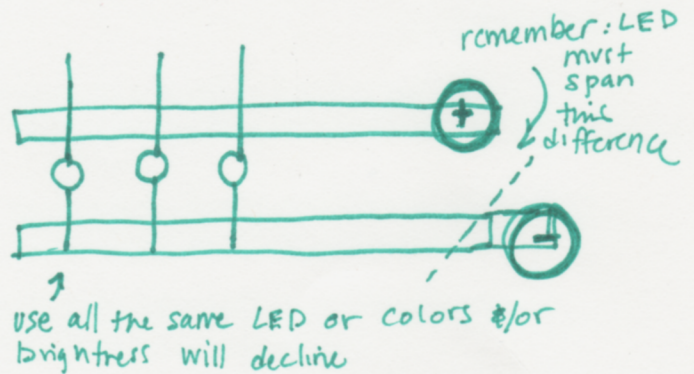 remember: LED
must
span
this
difference
+
-
use all the same LED or colors &/or
brightness will decline